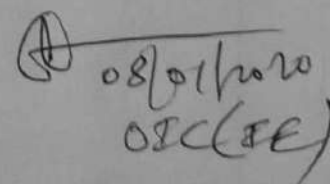 08/01/2020
OIC(IE)